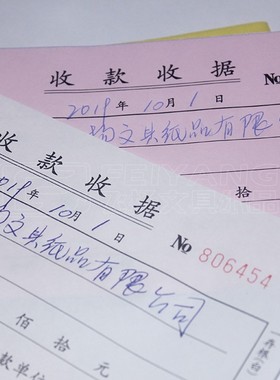 收款收据
No
2019年10月1日
文具纸品有限
拾
收款收据
2019年10月1日
No 806454
文具纸品有限公司
佰拾元
款单位
存根（白）